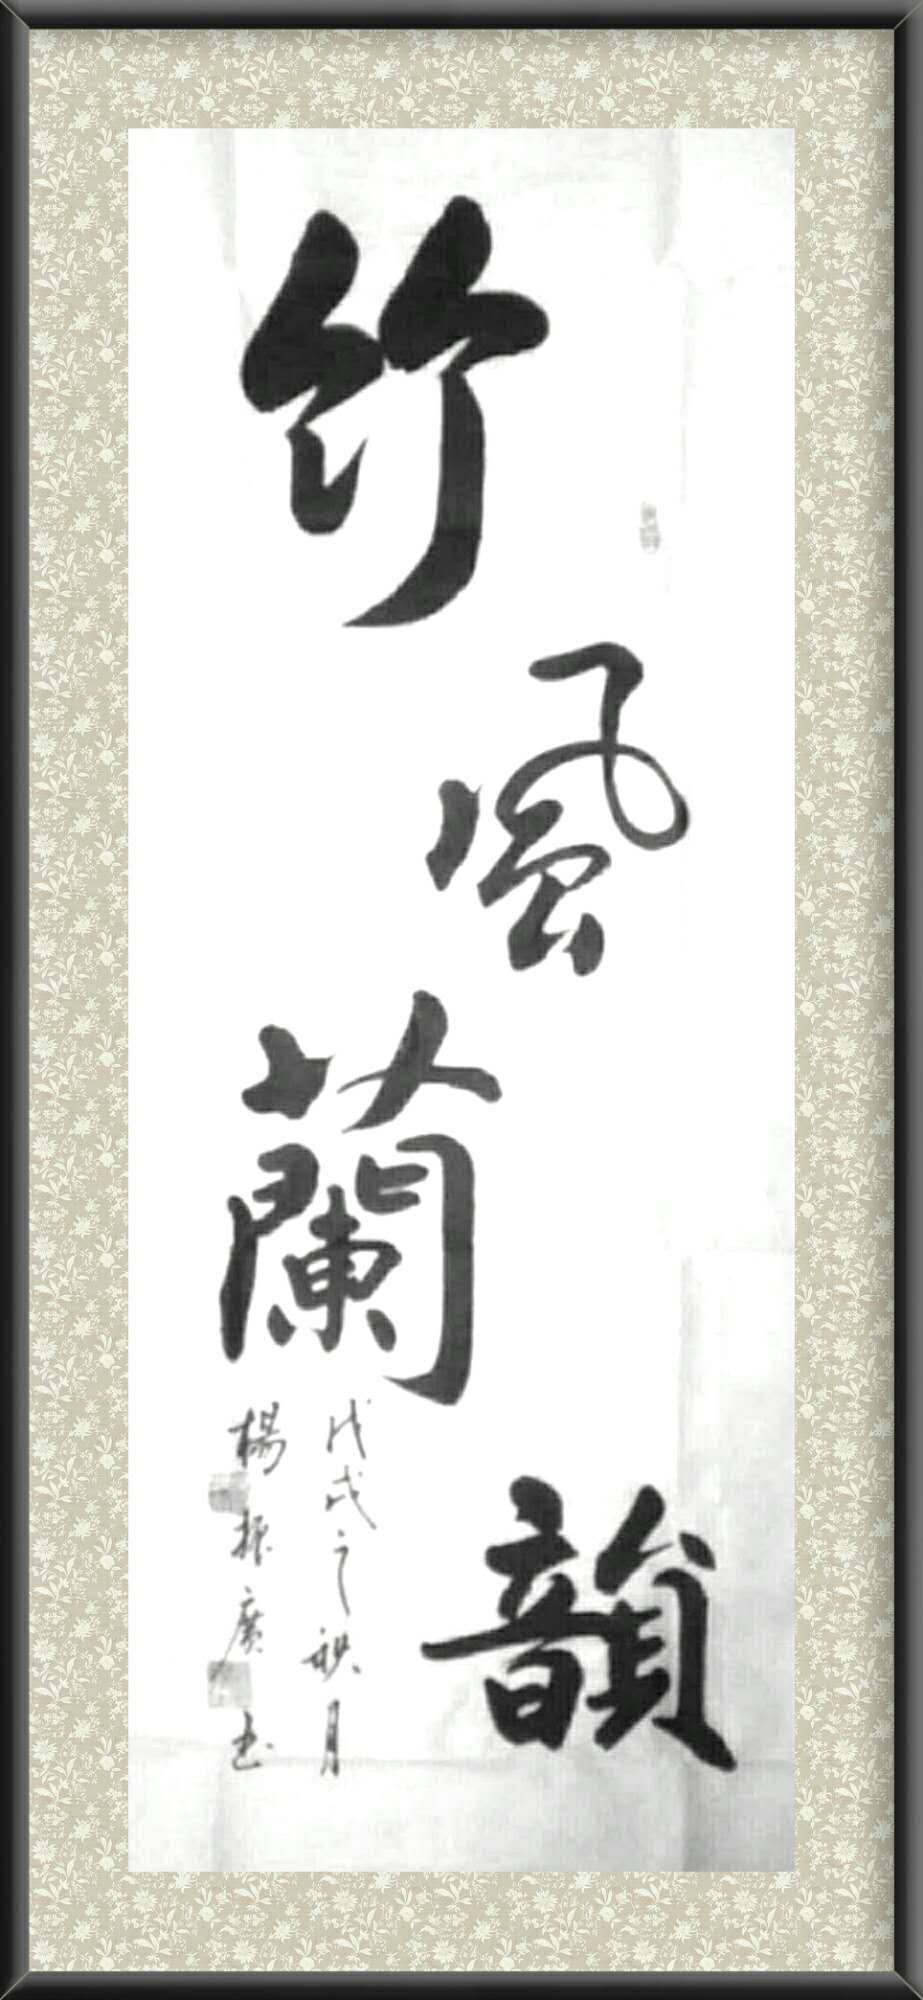 竹風蘭韻
戊戌之秋月
楊振廣书